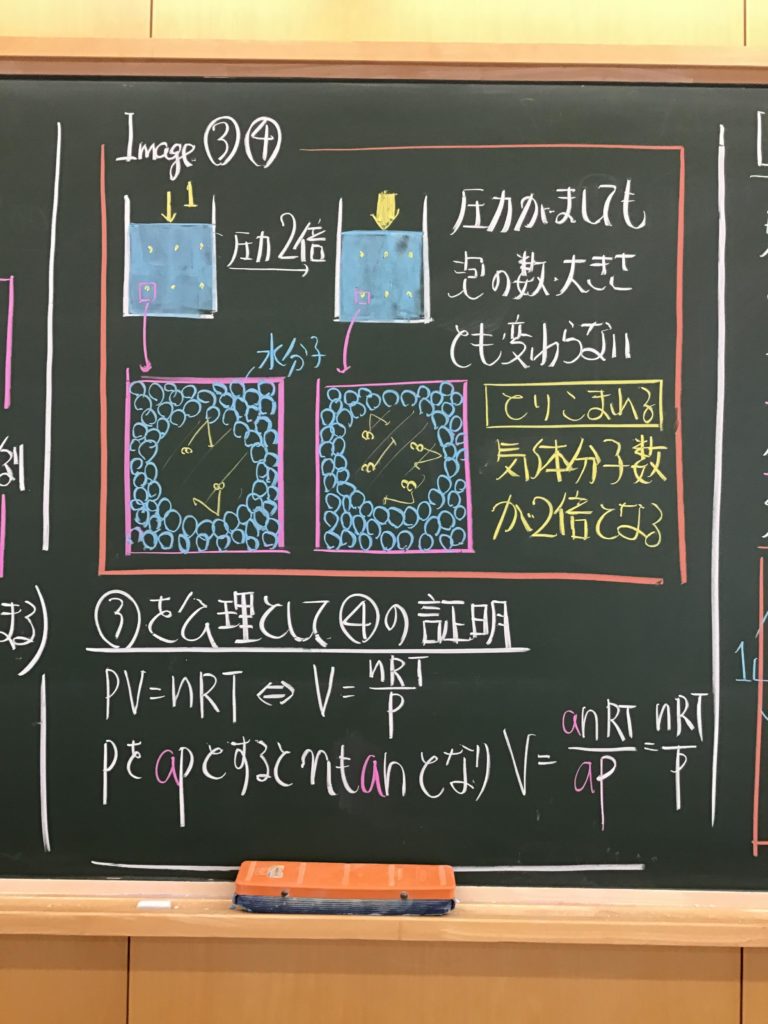 Image ③④
1
圧力2倍
圧力がましても
泡の数・大きさ
とも変わらない
水分子
とりこまれる
気体分子数
が2倍となる
③を公理として④の証明
PV=nRT ⇔ V=nRT/P
Pを aPとするとnもanとなり V=anRT/aP=nRT/P
まる)
1